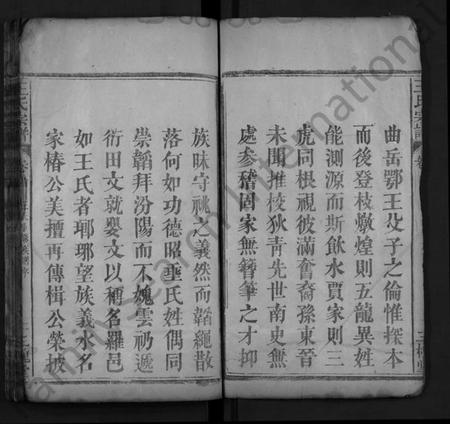 曲岳鄂王父子之倫惟探本
而後登枝燉煌則五龍異姓
能測源而斯飲水賈家則三
虎同根視彼滿奮裔孫東晉
未聞推梭狄青先世南史無
處參稽固家無簪筆之才抑
王氏宗譜
族昧守祧之義然而韜繩散
落何如功德昭垂氏姓偶同
崇韜拜汾陽而不媿雲礽遞
衍田文就嬰文以種名羅邑
如王氏者瑯琊望族義水名
家椿公美擅再傳楫公榮披
王氏宗譜